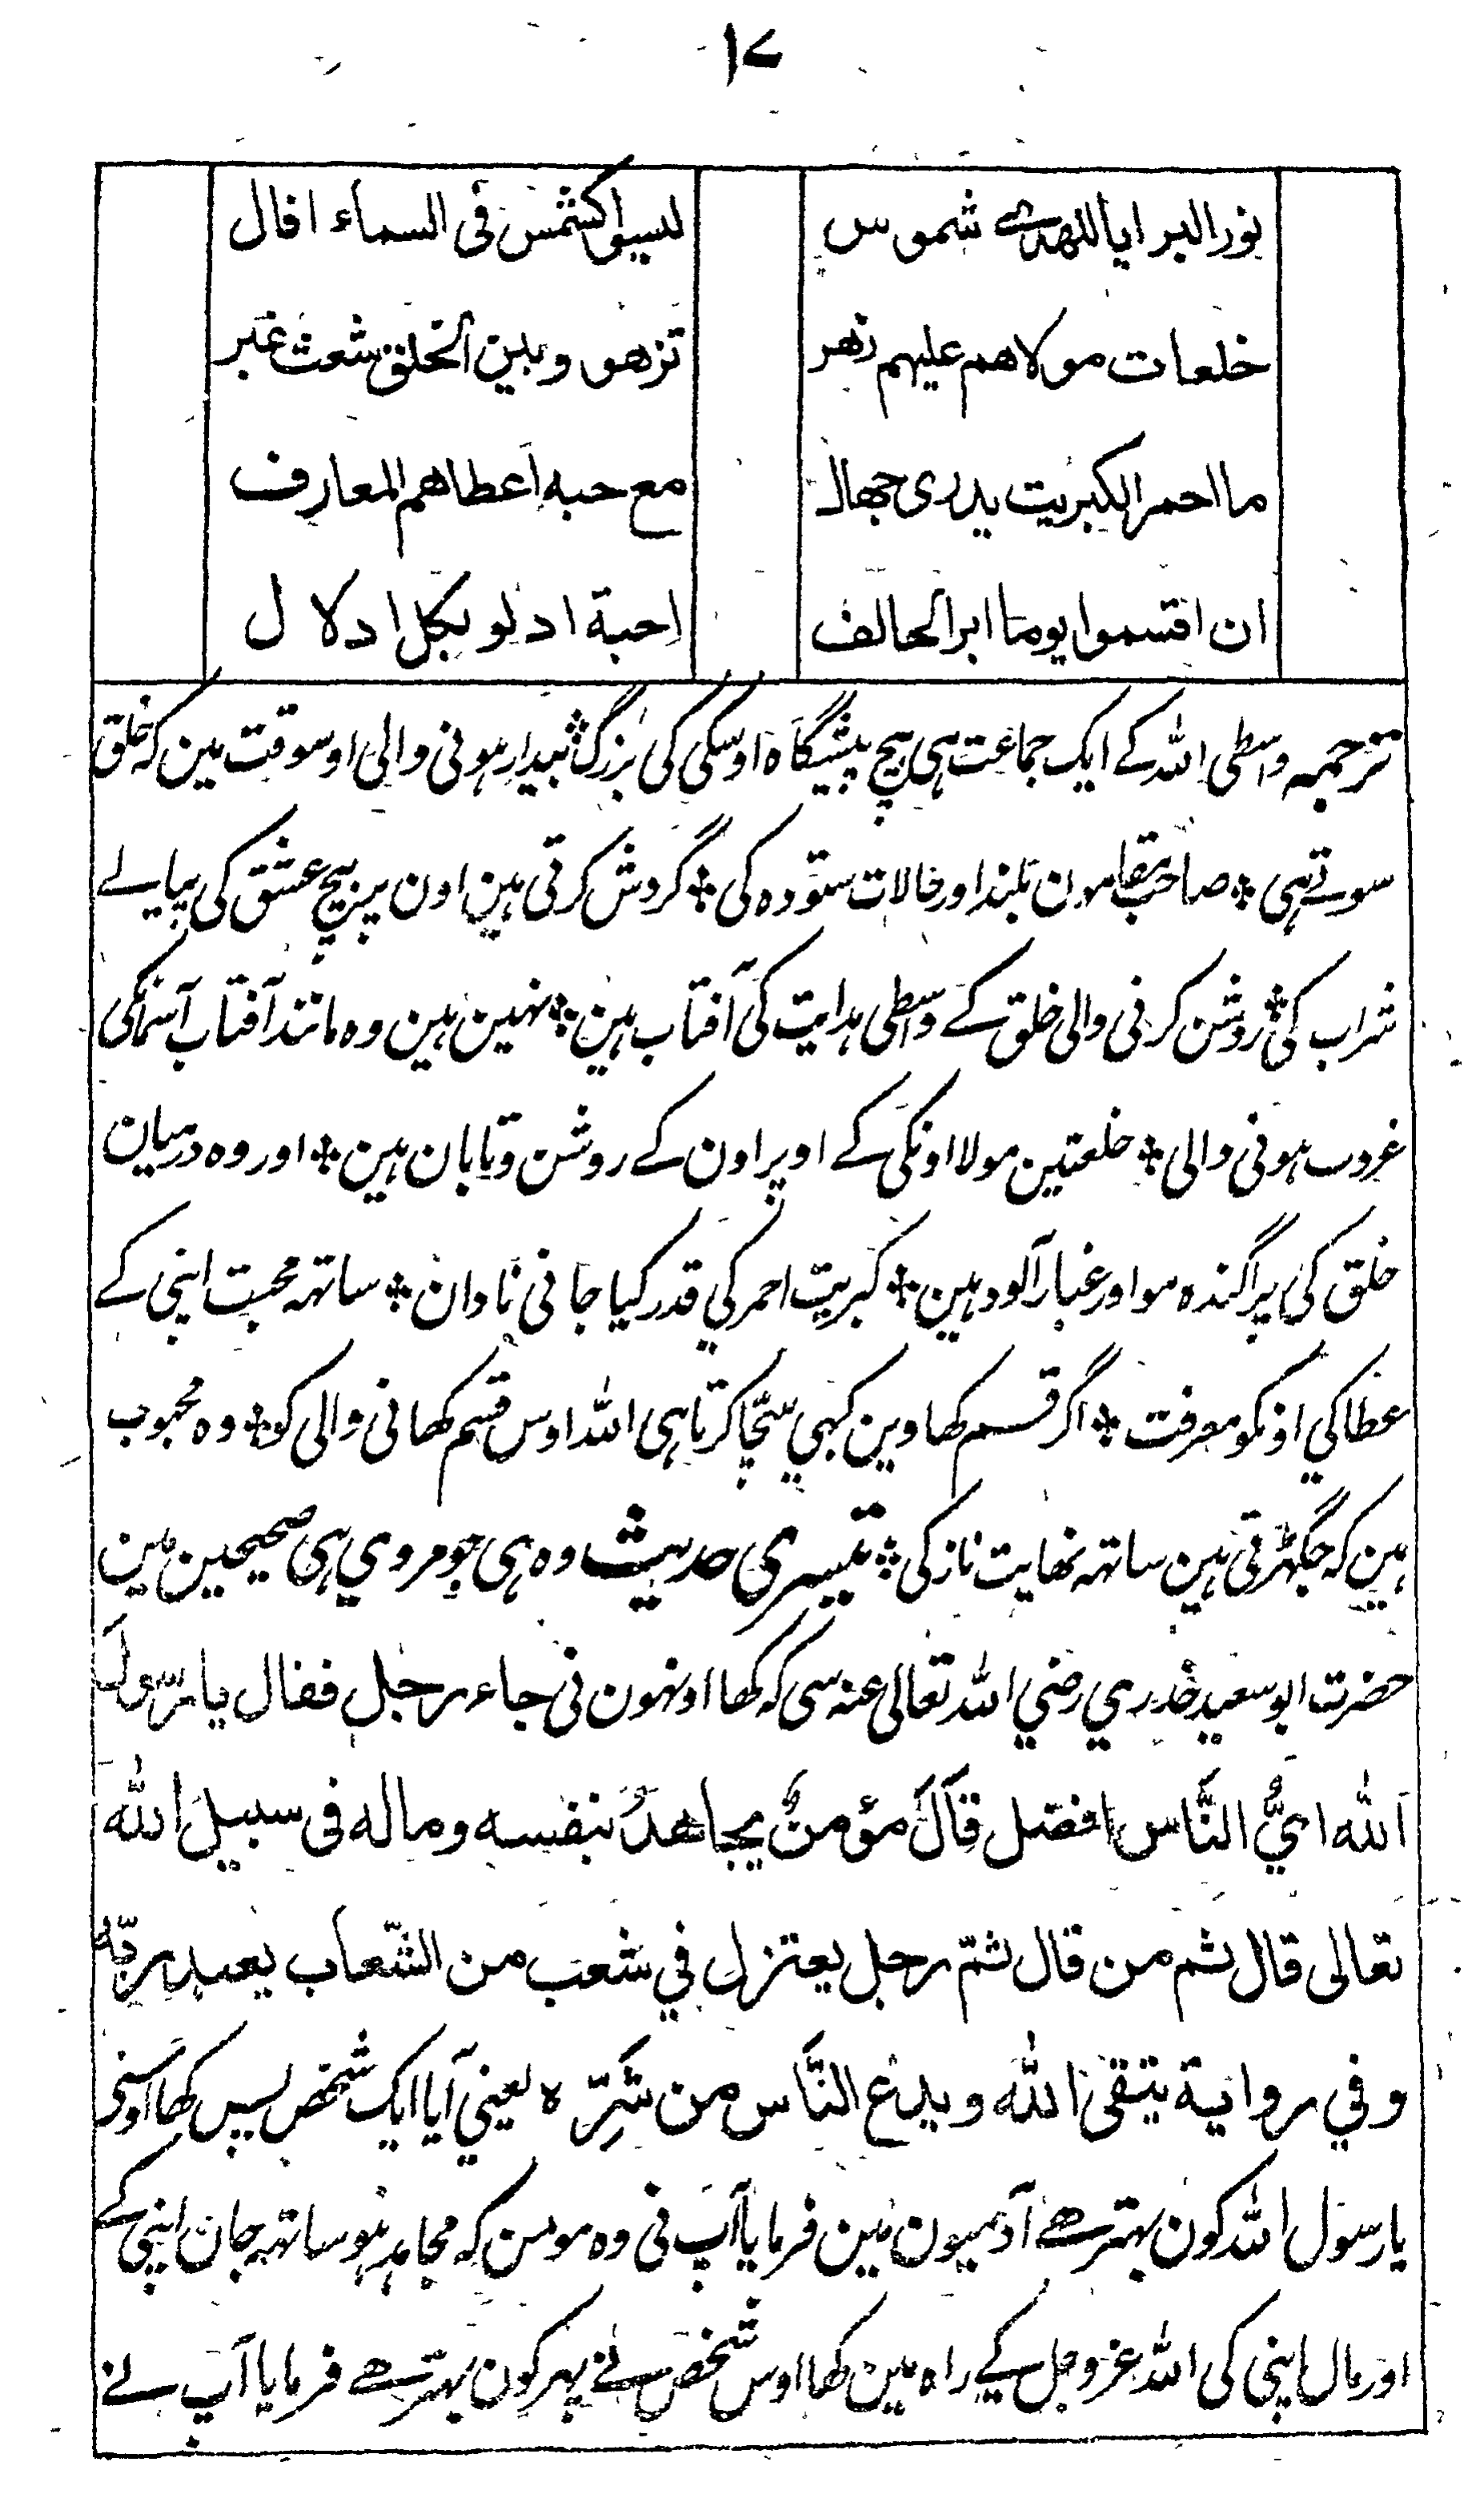 ۱۷
نور البرایا للهدے شموس لیسوا کشمس فی السماء افال
خلعات مولاهم علیهم زهر تزهو وبین الخلق شعث غبر
ما احمر الکبریت یدری جهال مع حبه اعطاهم المعارف
ان اقسموا یوما ابر الحالف احبة ادلو بکل ادلال
ترجمہ واسطی اللہ کے ایک جماعت ہی بیچ پیشگاہ اوسکی کی بزرگ ٭ بیدار ہونی والی اوسوقت مین کہ خلق
سوتے تہی ٭ صاحب مقامون بلند اور حالات ستودہ کی ٭ گردش کرتی ہین اون پر بیچ عشق کی پیالے
شراب کی ٭ روشن کرنی والی خلق کے واسطی ہدایت کی آفتاب ہین ٭ نہین ہین وہ مانند آفتاب آسمانکی
غروب ہونی والی ٭ خلعتین مولا اونکی کے اوپر اون کے روشن وتابان ہین ٭ اور وہ درمیان
خلق کی پراگندہ مو اور غبار آلود ہین ٭ کبریت احمر کي قدر کیا جانی نادان ٭ ساتہہ محبت اپنی کے
عطا کي اونکو معرفت ٭ اگر قسم کھاوین کبہي سچّا کرتا ہی اللہ اوس قسم کھانی والی کو ٭ وہ محبوب
ہین کہ جگہڑتی ہین ساتہہ نہایت ناز کی ٭ تیسری حدیث وہ ہی جو مروي ہی صحیحین مین
حضرت ابو سعید خدري رضي اللہ تعالی عنہ سی کہ کھا اونہون نی جاء رجل فقال یا رسول
اللہ ايُّ النَّاس افضل قالَ مؤمنٌ یجاهدُ بنفسه وماله فی سبیل اللہ
تعالی قال ثم من قال ثمّ رجل یعتزل في شعب من الشّعاب یعبد ربّهُ
وفي روایة یتقی اللہ ویدع النَّاس من شَرِّہ یعني آیا ایک شخص پس کھا اوسنی
یا رسول اللہ کون بہتر ھے آدمیون مین فرمایا آپ نی وہ مومن کہ مجاہد ہو ساتہہ جان اپنی کے
اور مال اپنی کی اللہ عزوجل کے راہ مین کھا اوس شخص نے پہر کون بہتر ھے فرمایا آپ نے